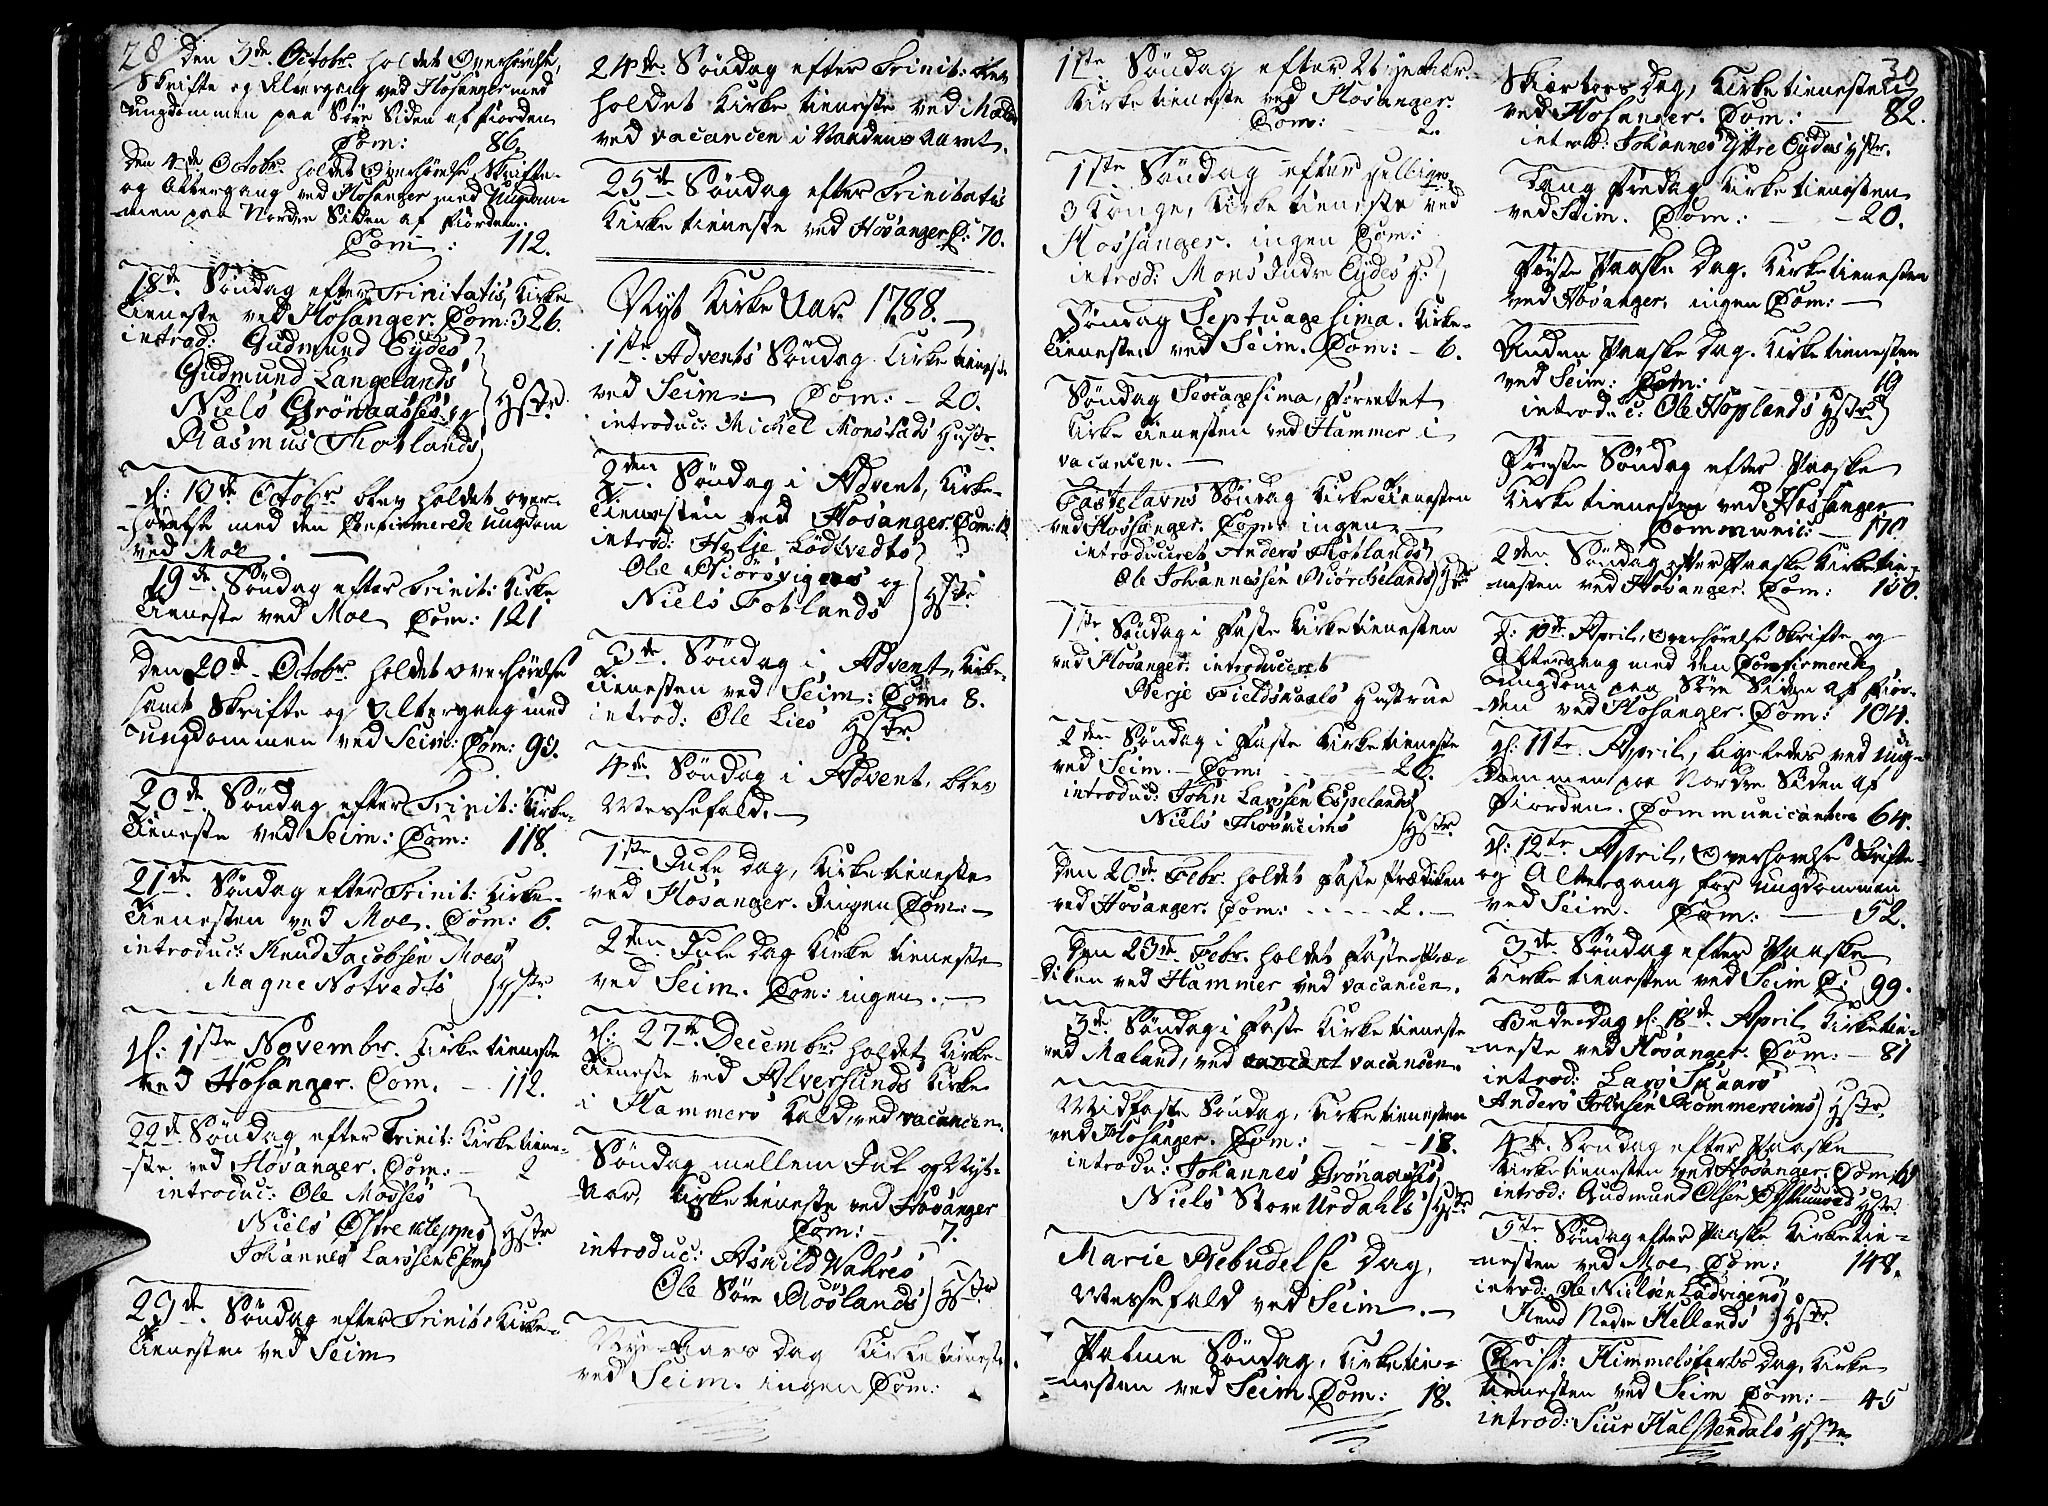 28 den 3de Octobr. holdet Overhørelse,
Skrifte og Altergang ved Hosanger med
ungdommen paa Søre Siden af Fiorden
Com: 86,
den 4de Octobr. holdet Overhørelse, Skrifte-
og Altergang ved Hosanger med Ungdom-
men paa Nordre Siden af Fiorden.
Com: 112.
18de Søndag efter Trinitatis, Kirke-
Tieneste ved Hosanger. Com: 326.
introd: Gudmund Eydes
Gudmund Langelands
Niels Grønaasses og
Rasmus Thotlands
Hstr.
d: 10de Octobr. blev holdet over-
hørelse med den Confirmerede ungdom
ved Moe.
19de Søndag efter Trinit: Kirke
Tieneste ved Moe Com: 121
Den 20de Octobr. holdet overhørelse
samt Skrifte og Altergang med
ungdommen ved Seim: Com: 90.
20de Søndag efter Trinit: Kirke-
Tieneste ved Seim: Com: 118.
21de Søndag efter Trinit: Kirke-
Tienesten ved Moe. Com: 6.
introduc: Knud Jacobsen Moes
Magne Notvedts
Hstr.
d: 1ste Novembr. Kirke tieneste
ved Hosanger. Com. 112.
22de Søndag efter Trinit: Kirke tiene-
ste ved Hosanger. Com: 2
introduc: Ole Modses
Niels Østre Kleppes
Johannes Larssen
Hstr
23de Søndag efter Trinit: Kirke-
Tienesten ved Seim
24de Søndag efter Trinit: blev
holdet Kirke tieneste ved
ved vacancen i Naadens Aaret.
25de Søndag efter Trinitatis
Kirke tieneste ved Hosanger C: 70.
Nyt Kirke Aar 1788.
1ste Advents Søndag Kirke tieneste
ved Seim: Com: 20.
introduc: Michel Monstads Hustr.
2den Søndag i Advent, Kirke-
Tienesten ved Hosanger. Com:
introd: Helje Lødtvedts
Ole og
Niels Fotlands
Hstr
3de Søndag i Advent, Kirke-
Tienesten ved Seim: Com: 8.
introd: Ole Lies Hstr.
4de Søndag i Advent, blev
Messefald.
1ste Jule dag, Kirke tieneste
ved Hosanger. Ingen Com:
2den Jule dag Kirke tieneste
ved Seim. Com: ingen.
d: 27de Decembr: holdet Kirke-
Tieneste ved Alversunds Kirke
i Hammers Kald, ved vacancen.
Søndag mellem Jul og Nyt-
Aar, Kirke tieneste ved Hosanger
Com: 7.
introduc:
Ole Søre Røslands
Hstr
Nye-Aars Dag Kirke tieneste
ved Seim. ingen Com:
1ste Søndag efter Nytaar.
Kirke tieneste ved Hosanger.
Com: 2.
1ste Søndag efter hellige
3 Konge, Kirke tieneste ved
Hossanger. ingen Com:
introd: Mons Indre Eydes H:
Søndag Septuagesima. Kirke-
Tienesten ved Seim. Com: 6.
Søndag Sexagesima, forrettet
Kirke Tienesten ved Hammer i
vacancen.
Fastelavns Søndag Kirke Tienesten
ved Hossanger. Com: ingen
introduceret Anders Thotlands
Ole Johannessen
Hstr
1ste Søndag i Faste Kirke tienesten
ved Hosanger. introduceret
Hustrue
2den Søndag i Faste Kirke tieneste
ved Seim. Com: 26.
introduc: John Larssen Espelands
Niels
Hstr.
Den 20de Febr. holdet Faste Prædiken
ved Hosanger. Com: 2.
Den 23de Febr. holdet Faste-Præ-
diken ved Hammer ved vacancen.
3de Søndag i Faste Kirke tieneste
ved Mæland, ved vacancen.
Midfaste Søndag, Kirke tienesten
ved Hosanger. Com: 18.
introdu: Johannes
Niels Store Urdahls
Hstr.
Marie Bebudelse Dag,
Messefald ved Seim.
Palme Søndag, Kirke tie-
nesten ved Seim. Com: 18.
30
Skiertors Dag, Kirke tienesten
ved Hosanger. Com: 82.
introd: Johannes Yttre Eydes Hstr.
Lang Fredag Kirke tienesten
ved Seim. Com: 20.
Første Paaske Dag. Kirke tienesten
ved Hosanger, ingen Com:
Anden Paaske Dag. Kirke tienesten
ved Seim: Com: 19
introduc: Ole Hoplands Hstr.
Første Søndag efter Paaske
Kirke tienesten ved Hossanger
Communic:
2den Søndag efter Paaske Kirke tie-
nesten ved Hosanger. Com: 150.
d: 10de April, Overhørelse Skrifte og
Altergang med den Confirmerede
ungdom paa Søre Siden af Fior-
den ved Hosanger. Com: 104.
d: 11te April, ligeledes ved ung-
dommen paa Nordre Siden af
Fiorden. Communicantere 64.
d: 12te April, Overhørelse Skrifte-
og Altergang for ungdommen
ved Seim. Com: 52.
3de Søndag efter Paaske
Kirke tienesten ved Seim C: 99.
Bededag d: 18de April Kirke tie-
neste ved Hosanger. Com: 81
introd: Lars
Anders Rommereims
Hstr.
4de Søndag efter Paaske
Kirke tienesten ved Hosanger. Com:
introd: Gudmund Olsen Hstr.
5te Søndag efter Paaske Kirke tie-
nesten ved Moe Com: 148.
introd: Ole Nielsen Ladvigens
Knud Nedre Hellands
Hstr.
Christ: Himmelsferts Dag, Kirke
tienesten ved Seim Com: 45
introd: Siur Halstendals Hstr.